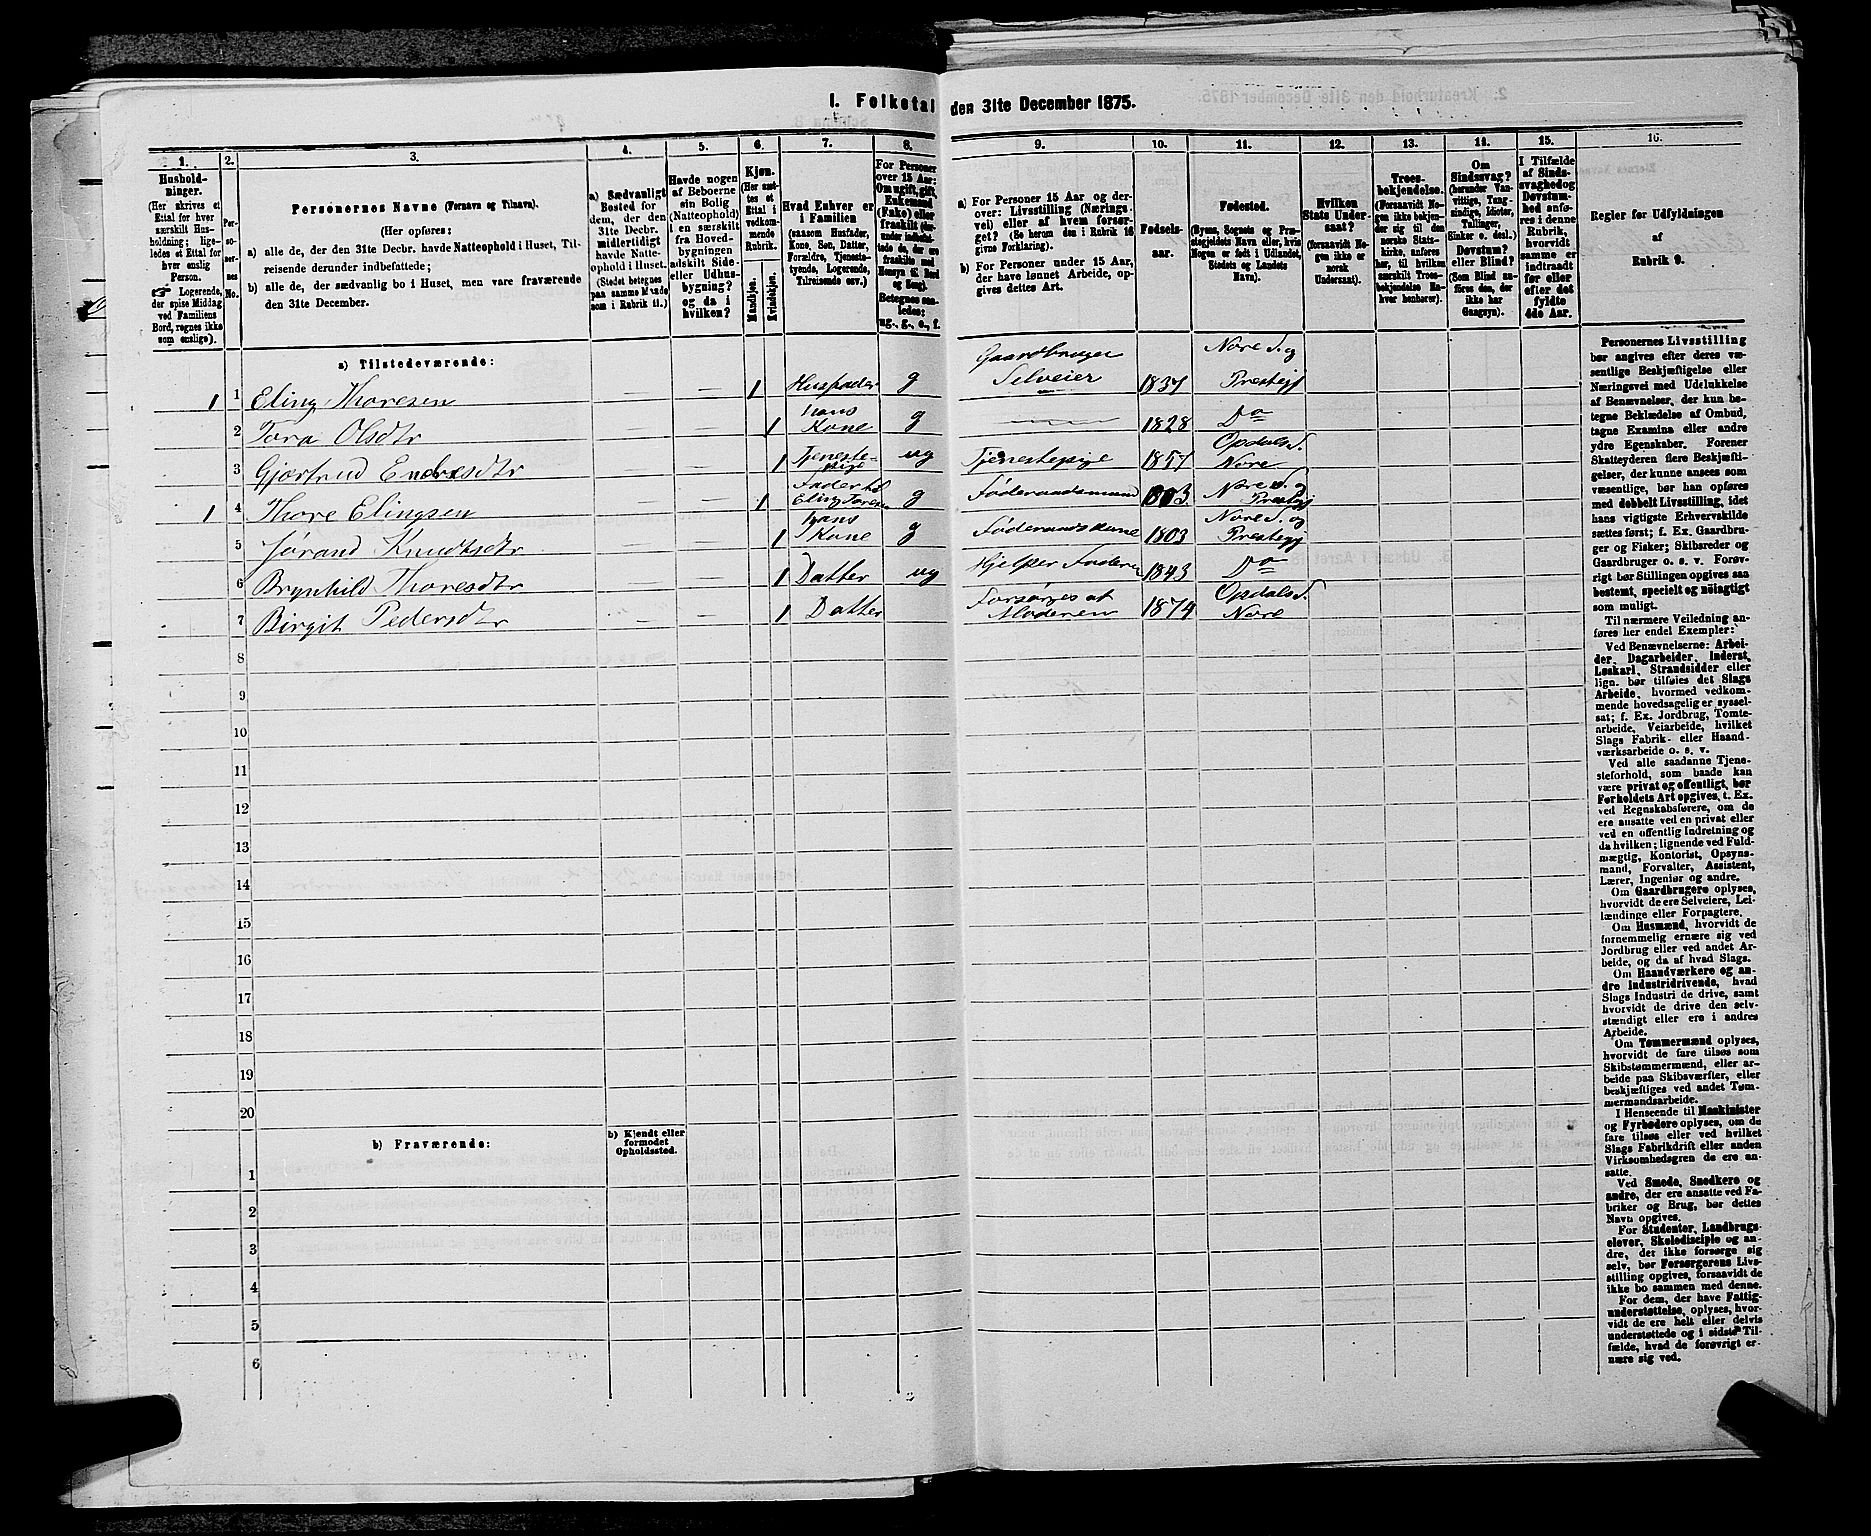 I. Folketal den 31te December 1875.
1.
2.
3.
4.
5.
6.
7.
8.
9.
10.
11.
12.
13.
14.
15.
16.
Hushold-
ninger.
(Her skrives et
Ettal for hver
særskilt Hus-
holdning; lige-
ledes et Ettal for
hver enslig
Person.
☞ Logerende,
der spise Middag
ved Familiens
Bord, regnes ikke
som enslige).
Per-
so-
ner-
nes
No.
Personernes Navne (Fornavn og Tilnavn).
(Her opføres:
a) alle de, der den 31te Decbr. havde Natteophold i Huset, Til-
reisende derunder indbefattede;
b) alle de, der sædvanlig bo i Huset, men vare fraværende
den 31te December.
a) Sædvanligt
Bosted for
dem, der den
31te Decbr.
midlertidigt
havde Natte-
ophold i Huset.
(Stedet betegnes
paa samme Maade
som i Rubrik 11.)
Havde nogen
af Beboerne
sin Bolig
(Natteophold)
i en særskilt
fra Hoved-
bygningen
adskilt Side-
eller Udhus-
bygning?
og da i
hvilken?
Kjøn.
(Her sæt-
tes et
Ettal i
vedkom-
mende
Rubrik.
Mandkjøn.
Kvindekjøn.
Hvad Enhver er
i Familien
(saasom Husfader,
Kone, Søn, Datter,
Forældre, Tjeneste-
tyende, Logerende,
Tilreisende osv.)
For Personer
over 15 Aar:
Om ugift, gift,
Enkemand
(Enke) eller
fraskilt
Betegnes saa-
ledes:
ug., g., e., f.
a) For Personer 15 Aar og der-
over: Livsstilling (Nærings-
vei) eller af hvem forsør-
get? (Se herom den i Rubrik 16
givne Forklaring).
b) For Personer under 15 Aar,
der have lønnet Arbeide, op-
gives dettes Art.
Fødsels-
aar.
Fødested.
(Byens, Sognets og Præ-
stegjeldets Navn eller, hvis
Nogen er født i Udlandet,
Stedets og Landets
Navn).
Hvilken
Stats Under-
saat?
(forsaavidt No-
gen ikke er
norsk
Undersaat).
Troes-
bekjendelse.
(Forsaavidt No-
gen ikke bekjen-
der sig til den
norske Stats-
kirke, anføres
her, til hvilken
særskilt Troes-
bekjendelse En-
hver henhører).
Om
Sindssvag?
(herunder Van-
vittige, Idioter,
Tullinger,
Sinker o. desl.)
Døvstum?
eller Blind?
(Som Blind an-
føres den, der
ikke har
Gangsyn).
I Tilfælde
af Sinds-
svaghed og
Døvstum-
hed anfø-
res i denne
Rubrik,
hvorvidt
samme er
indtraadt
før eller
efter det
fyldte
4de Aar.
Regler for Udfyldningen
af
Rubrik 9.
a) Tilstedeværende:
1 1 Eling Thoresen — — 1 Husfader g Gaardbruger Selveier 1837 Nore S. og Prestegj
2 Tora Olsdtr — — 1 hans Kone g — 1828 Do
3 Gjertrud Endresdtr — — 1 Tjeneste-pige ug Tjenestepige 1857 Opdals S. Nore
1 4 Thore Elingsen — — 1 Fader til Eling Toresen g Føderaadsmand 1803 Nore S. og Prestegj
5 Jørand Knudtsdtr — — 1 hans Kone g Føderaadskone 1803 Nore S. og Prestegj
6 Brynhild Thoresdtr — — 1 Datter ug Hjelper Faderen 1843 Do
7 Birgit Pedersdtr — — 1 Datter Forsørges af Moderen 1874 Opdals S. Nore
8
9
10
11
12
13
14
15
16
17
18
19
20
b) Fraværende:
b) Kjendt eller
formodet
Opholdssted.
1
2
3
4
5
6
Personernes Livsstilling
bør angives efter deres væ-
sentlige Beskjæftigelse eller
Næringsvei med Udelukkelse
af Benævnelser, der kun be-
tegne Beklædelse af Ombud,
tagne Examina eller andre
ydre Egenskaber. Forener
Skatteyderen flere Beskjæfti-
gelser, der kunne ansees som
væsentlige, bør han opføres
med dobbelt Livsstilling, idet
hans vigtigste Erhvervskilde
sættes først; f. Ex. Gaardbru-
ger og Fisker; Skibsreder og
Gaardbruger o. s. v. Forøv-
rigt bør Stillingen opgives saa
bestemt, specielt og nøiagtigt
som muligt.
Til nærmere Veiledning an-
føres her endel Exempler:
Ved Benævnelserne: Arbei-
der, Dagarbeider, Inderst,
Løskarl, Strandsidder eller
lign. bør tilføies det Slags
Arbeide, hvormed vedkom-
mende hovedsagelig er syssel-
sat; f. Ex. Jordbrug, Tomte-
arbeide, Veiarbeide, hvilket
Slags Fabrik- eller Haand-
værksarbeide o. s. v.
Ved alle saadanne Tjene-
steforhold, som baade kan
være privat og offentligt, bør
Forholdets Art opgives, t. Ex.
ved Regnskabsførere, om de
ere ansatte ved en privat eller
ved en offentlig Indretning og
da hvilken; lignende ved Fuld-
mægtig, Kontorist, Opsyns-
mand, Forvalter, Assistent,
Lærer, Ingeniør og andre.
Om Gaardbrugere oplyses,
hvorvidt de ere Selveiere, Lei-
lændinge eller Forpagtere.
Om Husmænd, hvorvidt de
fornemmelig ernære sig ved
Jordbrug eller ved andet Ar-
beide, og da af hvad Slags.
Om Haandværkere og an-
dre Industridrivende, hvad
Slags Industri de drive, samt
hvorvidt de drive den selv-
stændigt eller ere i andres
Arbeide.
Om Tømmermænd oplyses,
hvorvidt de fare tilsøs som
Skibstømmermænd, eller ar-
beide paa Skibsværfter, eller
beskjæftiges ved andet Tøm-
mermandsarbeide.
I Henseende til Maskinister
og Fyrbødere oplyses, om de
fare tilsøs eller ved hvilket
Slags Fabrikdrift eller anden
Virksomhedsgren de ere an-
satte.
Ved Smede, Snedkere og
andre, der ere ansatte ved Fa-
briker og Brug, bør dettes
Navn opgives.
For Studenter, Landbrugs-
elever, Skoledisciple og an-
dre, der ikke forsørge sig
selv, bør Forsørgerens Livs-
stilling opgives, forsaavidt de
ikke bo sammen med denne.
For dem, der have Fattig-
understøttelse, oplyses, hvor-
vidt de ere helt eller delvis
understøttede og i sidste Til-
fælde, hvad de forøvrigt er-
nære sig ved.